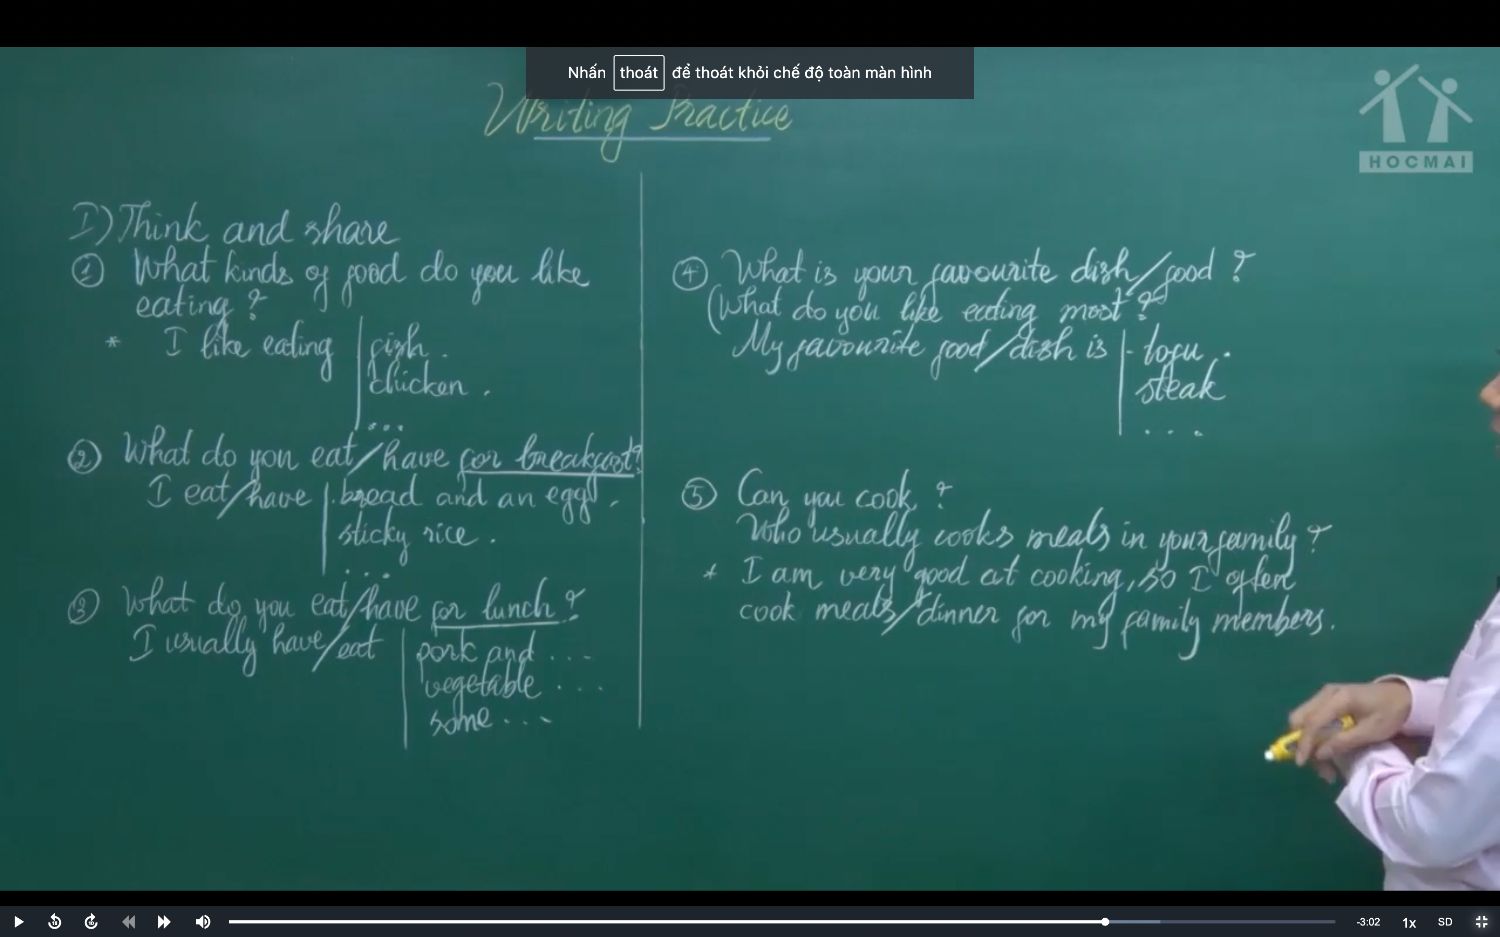 Nhấn thoát để thoát khỏi chế độ toàn màn hình
Writing Practice
HOCMAI
I) Think and share
① What kinds of food do you like
eating?
* I like eating | fish.
chicken.
...
② What do you eat/have for breakfast?
I eat/have | bread and an egg.
sticky rice.
...
③ What do you eat/have for lunch?
I usually have/eat | pork and ...
vegetable ...
some ...
④ What is your favourite dish/food?
(What do you like eating most?
My favourite food/dish is | - tofu.
steak
...
⑤ Can you cook?
Who usually cooks meals in your family?
* I am very good at cooking, so I often
cook meals/dinner for my family members.
-3:02 1x SD